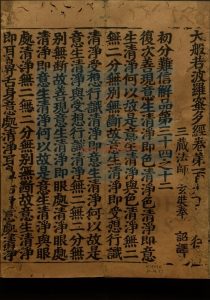 大般若波羅蜜多經卷第二
三藏法師玄奘奉 詔譯
初分難信解品第三十四之二十二
復次善現意生清淨即色清淨色清淨即意
生清淨何以故是意生清淨與色清淨無二
無二分無別無斷故意生清淨即受想行識
清淨受想行識清淨即意生清淨何以故是
意生清淨與受想行識清淨無二無二分無
別無斷故善現意生清淨即眼處清淨眼處
清淨即意生清淨何以故是意生清淨與眼
處清淨無二無二分無別無斷故意生清淨
即耳鼻舌身意處清淨耳意處清淨